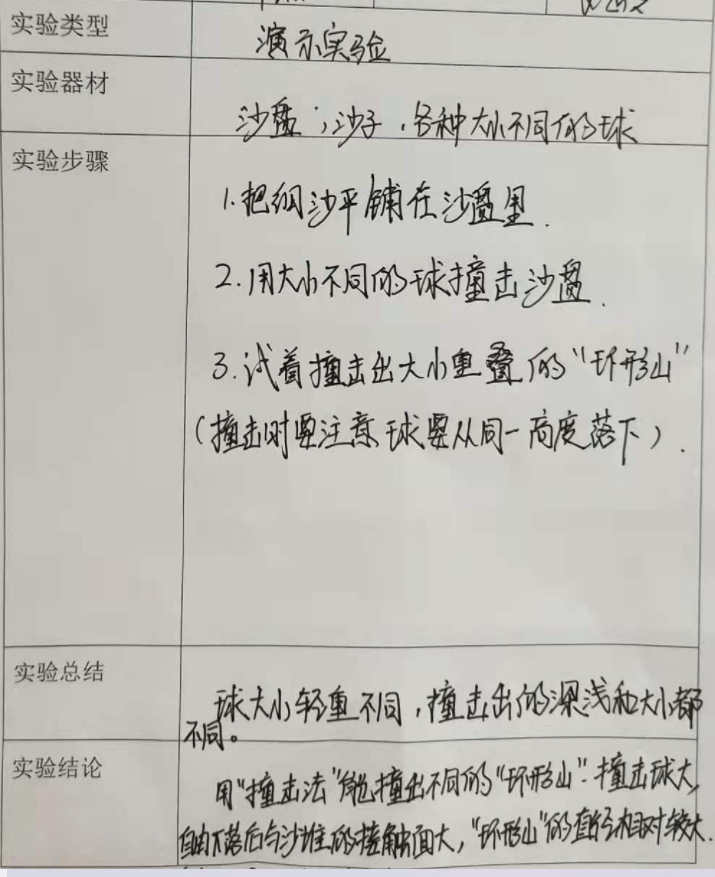 实验类型 演示实验
实验器材 沙盘；沙子，各种大小不同的球
实验步骤
1.把细沙平铺在沙盘里.
2.用大小不同的球撞击沙盘.
3.试着撞击出大小重叠的“环形山”
（撞击时要注意球要从同一高度落下）.
实验总结
球大小轻重不同，撞击出的深浅和大小都
不同。
实验结论
用“撞击法”能撞出不同的“环形山”.撞击球大,
自由下落后与沙堆的接触面大，“环形山”的直径相对较大.